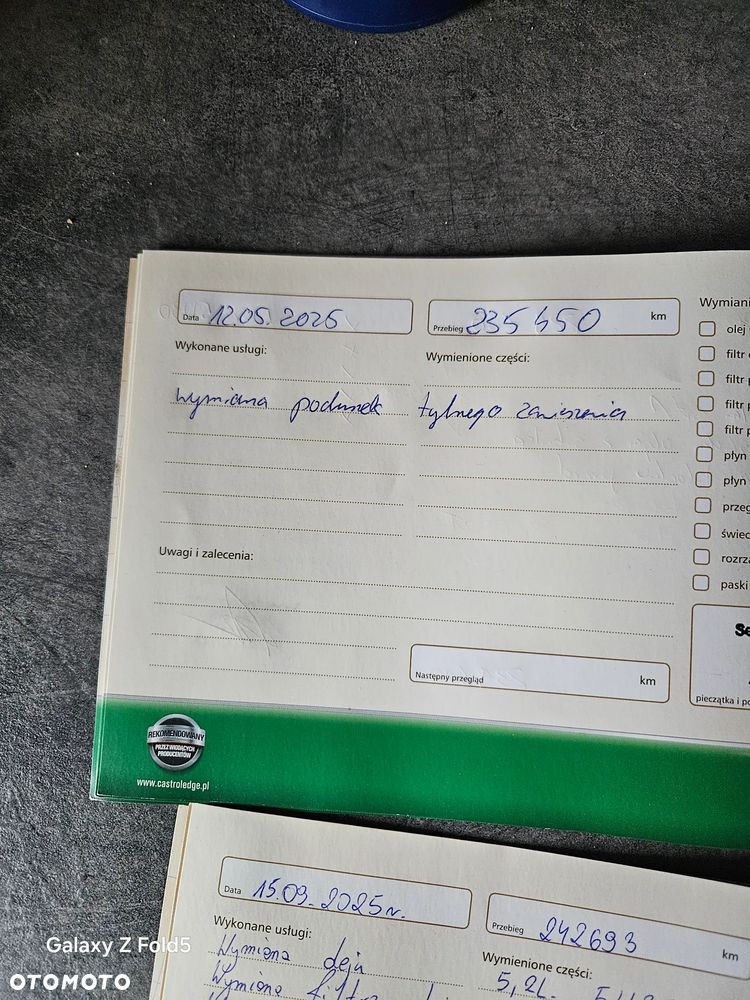 Data 12.05.2025
Przebieg 235 450 km
Wymiani
Wykonane usługi:
Wymienione części:
wymiana podusek tylnego zawieszenia
olej
filtr
filtr
filtr
filtr
płyn
płyn
przeg
świec
rozrz
paski
Uwagi i zalecenia:
Następny przegląd km
Se
pieczątka i po
REKOMENDOWANY
PRZEZ WIODĄCYCH
PRODUCENTÓW
www.castroledge.pl
Data 15.09.2025r.
Przebieg 242693 km
Wykonane usługi:
Wymienione części:
Wymiana oleju
5,2L.
Wymiana filtra
Galaxy Z Fold5
OTOMOTO